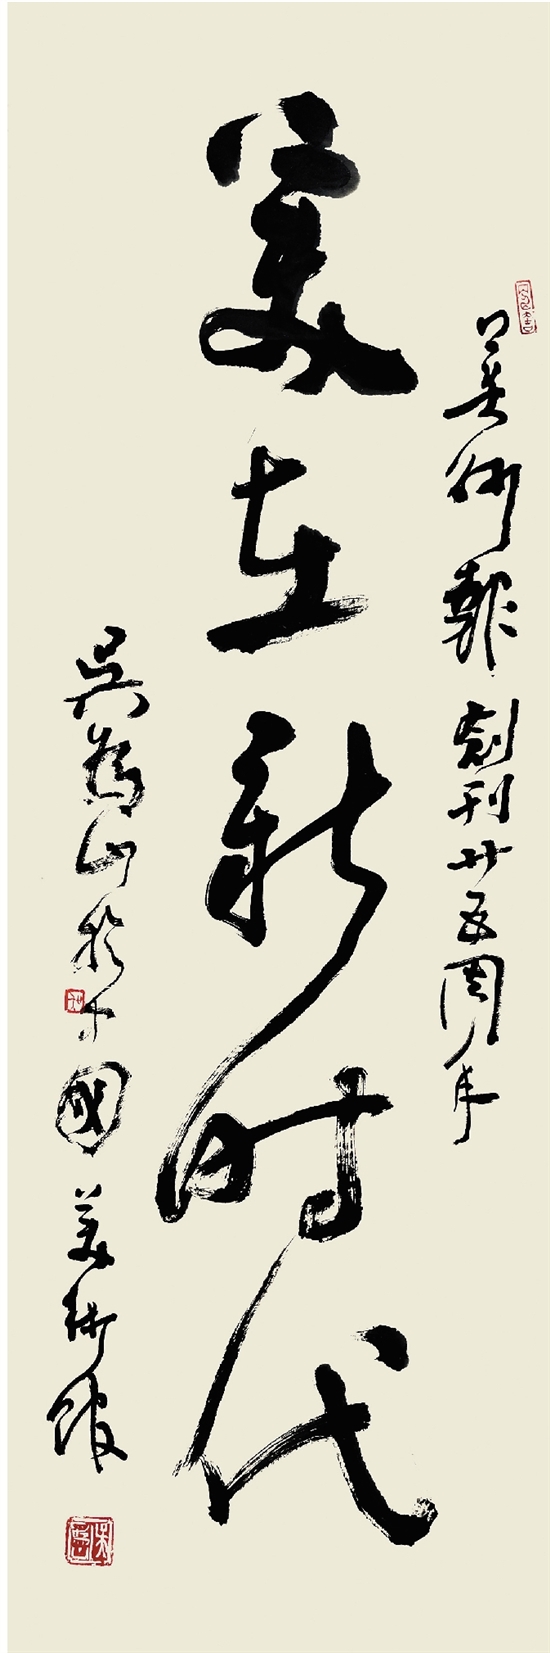 美術報創刊廿五周年
美在新时代
吳為山於中國美術館